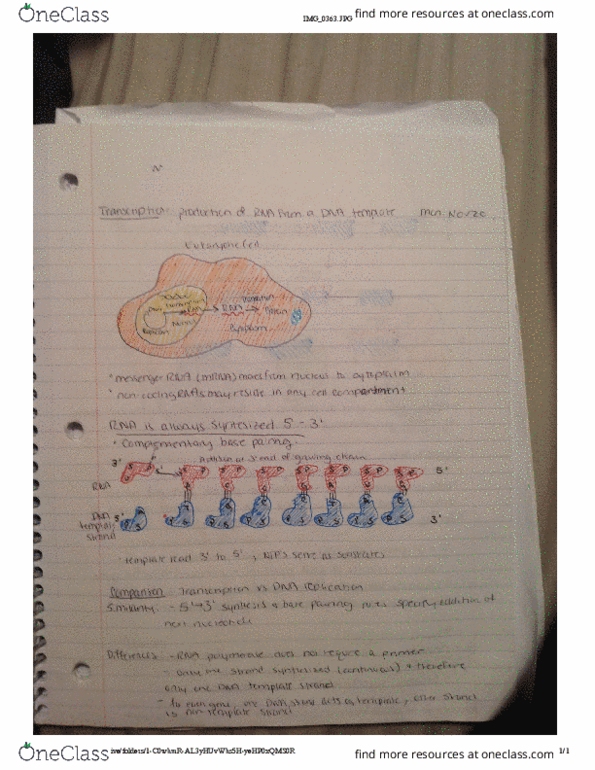 OneClass
IMG_0363.JPG
find more resources at oneclass.com
Transcription: production of RNA from a DNA template Mon. Nov 20,
Eukaryotic Cell
RNA → Protein
Cytoplasm
• messenger RNA (mRNA) moves from nucleus to cytoplasm
• non-coding RNAs may reside in any cell compartment
RNA is always synthesized 5' - 3'
• Complementary base pairing
Addition at 3' end of growing chain
3' 5'
RNA
DNA 5'
template 3'
strand
template read 3' to 5', NTPs serve as substrates
Comparison Transcription vs DNA replication
Similarity: - 5'→3' synthesis + base pairing specify addition of
next nucleotide
Differences: - RNA polymerase does not require a primer
only one strand synthesized (continuous) + therefore
only one DNA template strand
- for each gene, one DNA strand acts as template, other strand
is non-template strand
OneClass
find more resources at oneclass.com
1/1